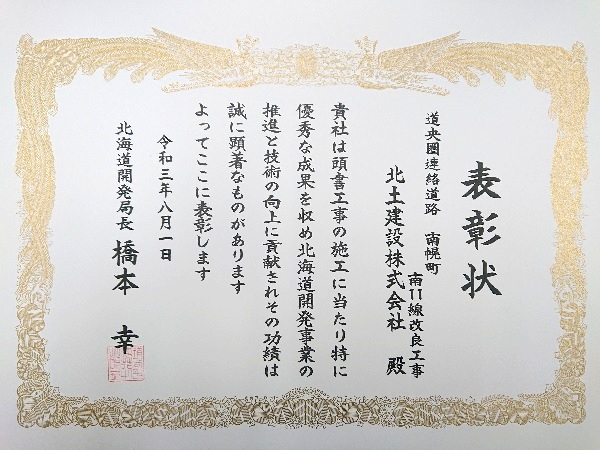 表彰状
道央圏連絡道路 南幌町
南11線改良工事
北土建設株式会社 殿
貴社は頭書工事の施工に当たり特に
優秀な成果を収め北海道開発事業の
推進と技術の向上に貢献されその功績は
誠に顕著なものがあります
よってここに表彰します
令和三年八月一日
北海道開発局長 橋本 幸